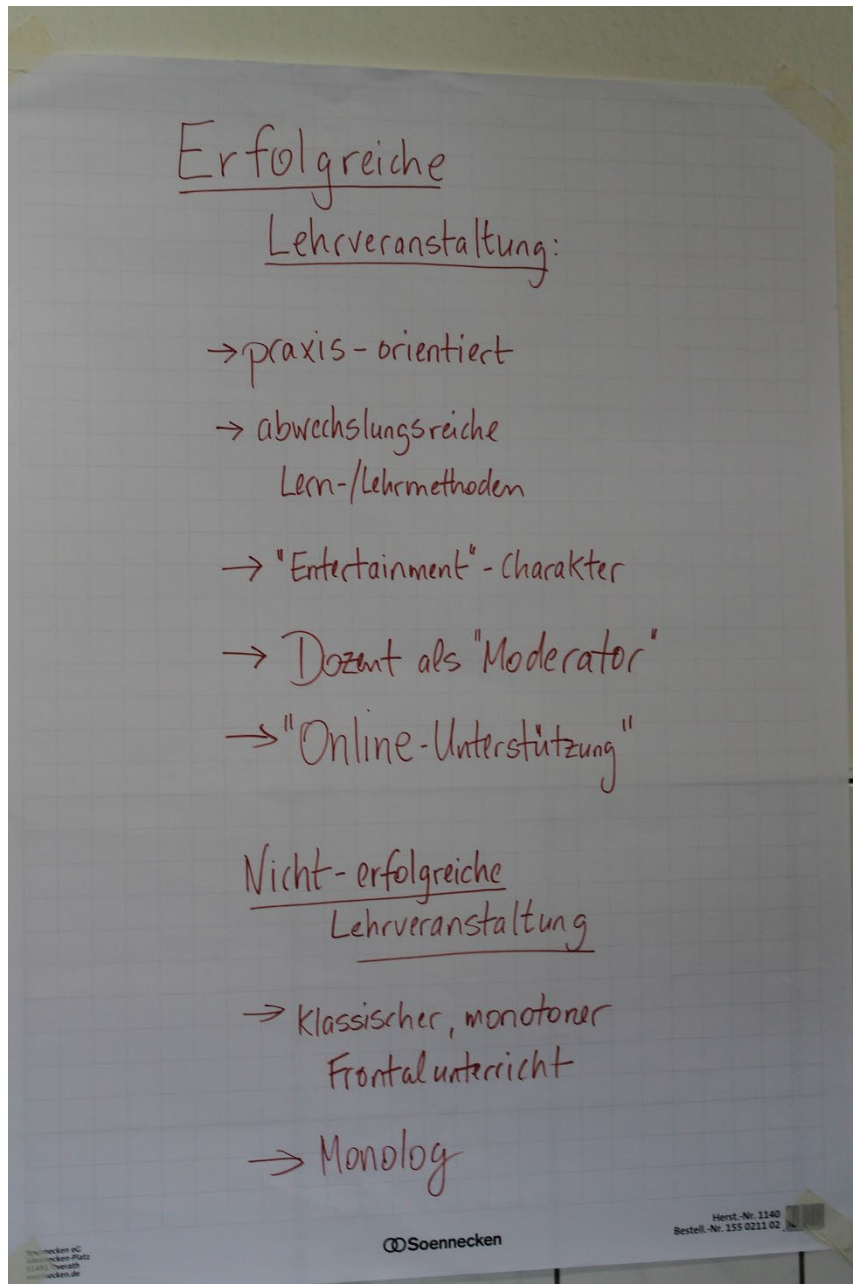 Erfolgreiche
Lehrveranstaltung:
→ praxis-orientiert
→ abwechslungsreiche
Lern-/Lehrmethoden
→ "Entertainment"-Charakter
→ Dozent als "Moderator"
→ "Online-Unterstützung"
Nicht-erfolgreiche
Lehrveranstaltung
→ Klassischer, monotoner
Frontalunterricht
→ Monolog
Soennecken
Herst.-Nr. 1140
Bestell.-Nr. 155 0211 02